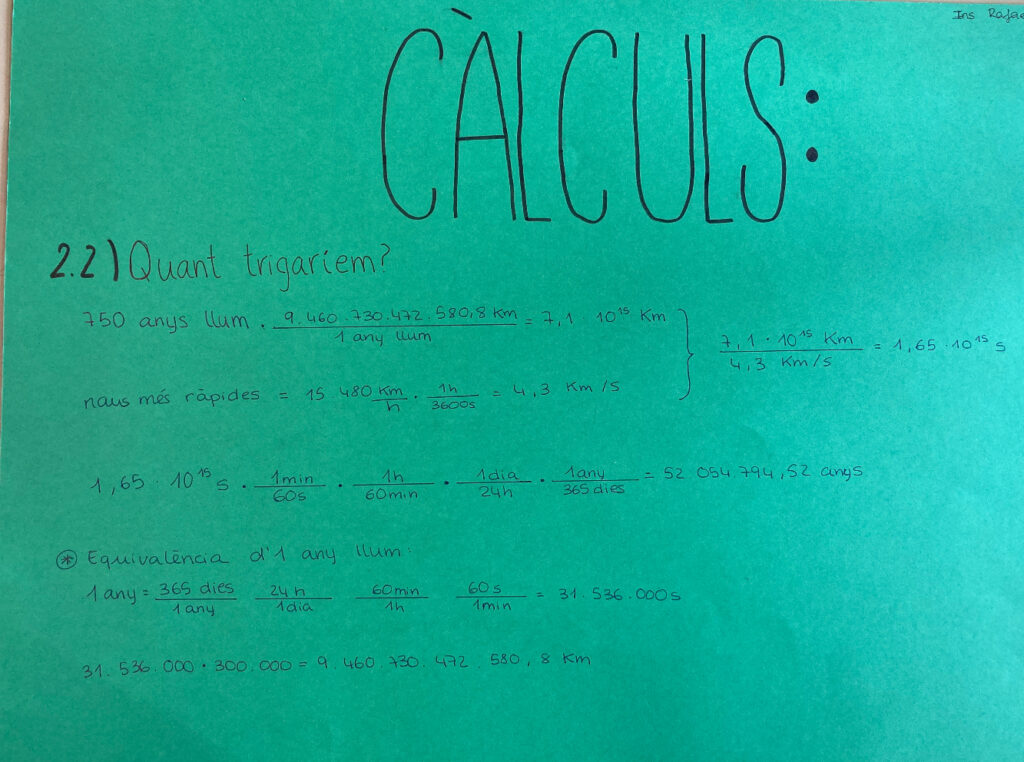 Ins Rafae
CÀLCULS:
2.2) Quant trigaríem?
750 anys llum · 9.460.730.472.580,8 Km / 1 any llum = 7,1 10¹⁵ Km
7,1 · 10¹⁵ Km / 4,3 Km/s = 1,65 · 10¹⁵ s
naus més ràpides = 15 480 Km / h · 1h / 3600s = 4,3 Km/s
1,65 · 10¹⁵ s · 1min / 60s · 1h / 60min · 1dia / 24h · 1any / 365 dies = 52 054 794,52 anys
* Equivalència d'1 any llum:
1 any = 365 dies / 1 any 24 h / 1 dia 60 min / 1h 60 s / 1 min = 31.536.000 s
31.536.000 · 300.000 = 9.460.730.472.580,8 Km